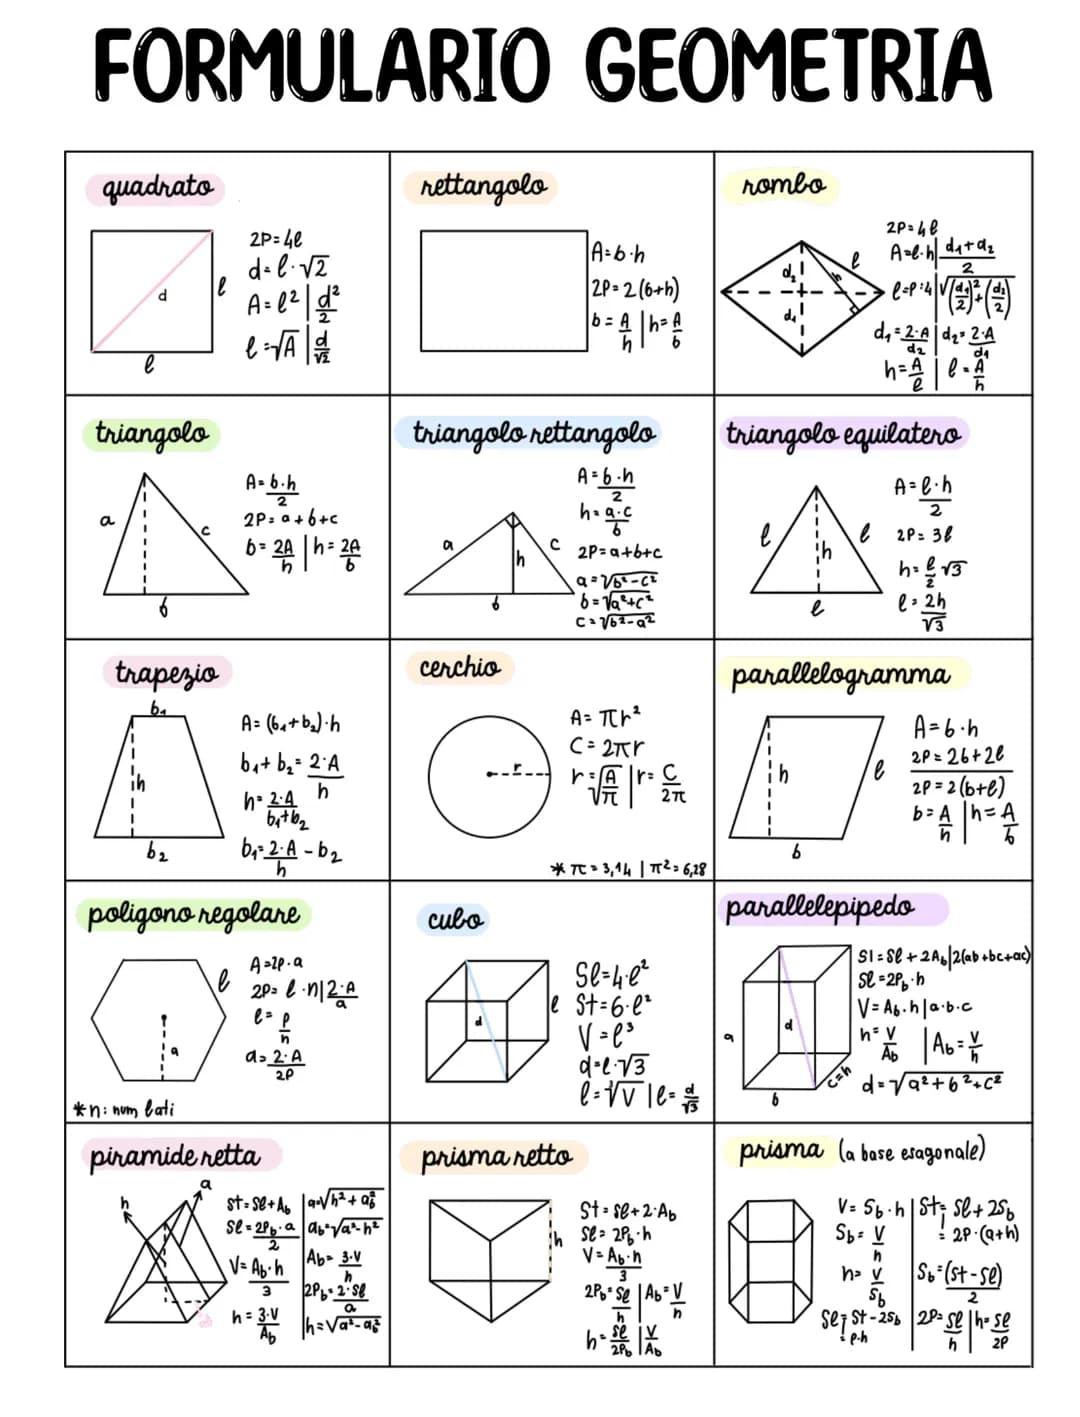 FORMULARIO GEOMETRIA
quadrato
d
ℓ
ℓ
2P=4ℓ
d=ℓ·√2
A=ℓ² | d²/2
ℓ=√A | d/√2
rettangolo
A=b·h
2P=2(b+h)
b=A/h | h=A/b
rombo
d₂
d₁
h
ℓ
2P=4ℓ
A=ℓ·h | d₁+d₂/2
ℓ=P:4 | √(d₁/2)²+(d₂/2)
d₁=2·A/d₂ | d₂=2·A/d₁
h=A/ℓ | ℓ=A/h
triangolo
a
c
b
A=b·h/2
2P=a+b+c
b=2A/h | h=2A/b
triangolo rettangolo
a
c
h
b
A=b·h/2
h=a·c/b
2P=a+b+c
a=√b²-c²
b=√a²+c²
c=√b²-a²
triangolo equilatero
ℓ
ℓ
h
ℓ
A=ℓ·h/2
2P=3ℓ
h=ℓ/2 √3
ℓ=2h/√3
trapezio
b₁
h
b₂
A=(b₁+b₂)·h
b₁+b₂=2·A/h
h=2·A/b₁+b₂
b₁=2·A/h-b₂
cerchio
r
A=πr²
C=2πr
r=√A/√π | r=C/2π
*π=3,14 | π²=6,28
parallelogramma
h
ℓ
b
A=b·h
2P=2b+2ℓ
2P=2(b+ℓ)
b=A/h | h=A/b
poligono regolare
ℓ
a
A=2p·a
2P=ℓ·n | 2·A/a
ℓ=P/n
a=2·A/2P
*n: num lati
cubo
d
ℓ
Sℓ=4·ℓ²
St=6·ℓ²
V=ℓ³
d=ℓ·√3
ℓ=∛V | ℓ=d/√3
parallelepipedo
a
d
b
c=h
Sl=Sℓ+2Ab | 2(ab+bc+ac)
Sℓ=2Pb·h
V=Ab·h | a·b·c
h=V/Ab | Ab=V/h
d=√a²+b²+c²
piramide retta
h
a
St=Sℓ+Ab | a=√h²+ab²
Sℓ=2Pb·a/2 | ab=√a²-h²
V=Ab·h/3 | Ab=3·V/h
2Pb=2·Sℓ/a
h=3·V/Ab | h=√a²-ab²
prisma retto
h
St=Sℓ+2·Ab
Sℓ=2Pb·h
V=Ab·h/3
2Pb=Sℓ/h | Ab=V/h
h=Sℓ/2Pb | V/Ab
prisma (a base esagonale)
V=Sb·h | St=Sℓ+2Sb
Sb=V/h | =2P·(a+h)
h=V/Sb | Sb=(St-Sℓ)/2
Sℓ=St-2Sb | 2P=Sℓ/h | h=Sℓ/2P
=P·h